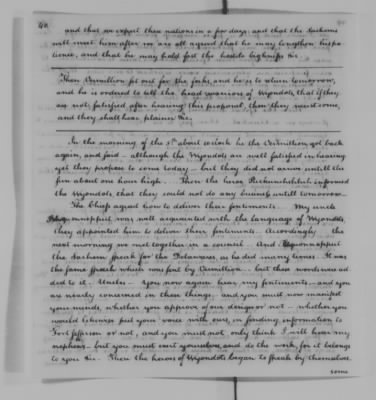 40
and that we expect these nations in a few days, and that the sachems
will meet him after we are all agreed that he may lengthen his pa-
tience, and that he may hold fast the hostile bigknifes &c.
Then Vermillion set out for the forks, and he is to return tomorrow,
and he is ordered to tell the head warriors of Wyondots, that if they
are not satisfied after hearing this proposal, then they must come,
and they shall hear plainer &c.
In the morning of the 5th about 10 o'clock he the Vermillion got back
again, and said - although the Wyondots are well satisfied in hearing
yet they propose to come today - but they did not arrive untill the
sun about one hour high. Then the heros informed
the Wyondots that they could not do any thing untill tomorrow.
The Chiefs agreed how to deliver their sentiments. My uncle
was well acquainted with the language of Wyondots
they appointed him to deliver their sentiments. Accordingly the
next morning we met together in a council. And
the Sachem speak for the Delawares, as he did many times. It was
the same speech which was sent by Vermillion, but these words were ad-
ded to it. Uncles - You now again hear my sentiments - and you
are nearly concerned in these things, and you must now manifest
your minds, whether you approve of our doings or not - whether you
would likewise put your voice with ours, in sending information to
Fort Jefferson or not, and you must not only think I will hear my
nephews - but you must exert yourselves, and do the work, for it belongs
to you &c. Then the heros of Wyondots began to speak by themselves.
some